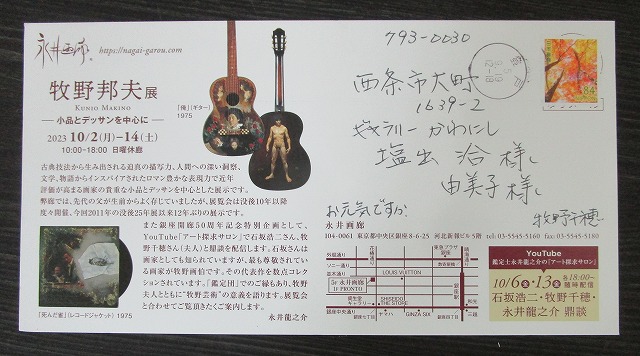 永井画廊
https://nagai-garou.com
牧野邦夫展
KUNIO MAKINO
―小品とデッサンを中心に―
2023 10/2(月)-14(土)
10:00-18:00 日曜休廊
「俺」(ギター)
1975
古典技法から生み出される迫真の描写力、人間への深い洞察、
文学、物語からインスパイアされたロマン豊かな表現力で近年
評価が高まる画家の貴重な小品とデッサンを中心とした展示です。
弊廊では、先代の父が生前からよく存じていましたが、展覧会は没後10年以降
度々開催、今回2011年の没後25年展以来12年ぶりの展示です。
また銀座開廊50周年記念特別企画として、
YouTube「アート探求サロン」で石坂浩二さん、牧
野千穂さん(夫人)と鼎談を配信します。石坂さんは
画家としても知られていますが、最も尊敬されてい
る画家が牧野画伯です。その代表作を数点コレク
ションされています。「鑑定団」でのご縁もあり、牧野
夫人とともに“牧野芸術”の意義を語ります。展覧会
と合わせてご覧頂きたくご案内します。
永井龍之介
「死んだ雀」(レコードジャケット)1975
793-0030
西条市大町
1639-2
ギャラリーかわにし
塩出 治 様
由美子 様
お元気ですか
牧野千穂
84
永井画廊
104-0061 東京都中央区銀座8-6-25 河北新報ビル5階 tel:03-5545-5160 fax:03-5545-5180
外堀通り
ソニー通り
並木通り
銀座中央通り
LOUIS VUITTON
5F 永井画廊
1F PRONTO
資生堂
ギャラリー
SHISEIDO
THE STORE
ヤマハ
GINZA SIX
銀座駅
三越
和光
YouTube
鑑定士永井龍之介の「アート探求サロン」
10/6金・13金 各18:00~随時配信
石坂浩二・牧野千穂・
永井龍之介 鼎談